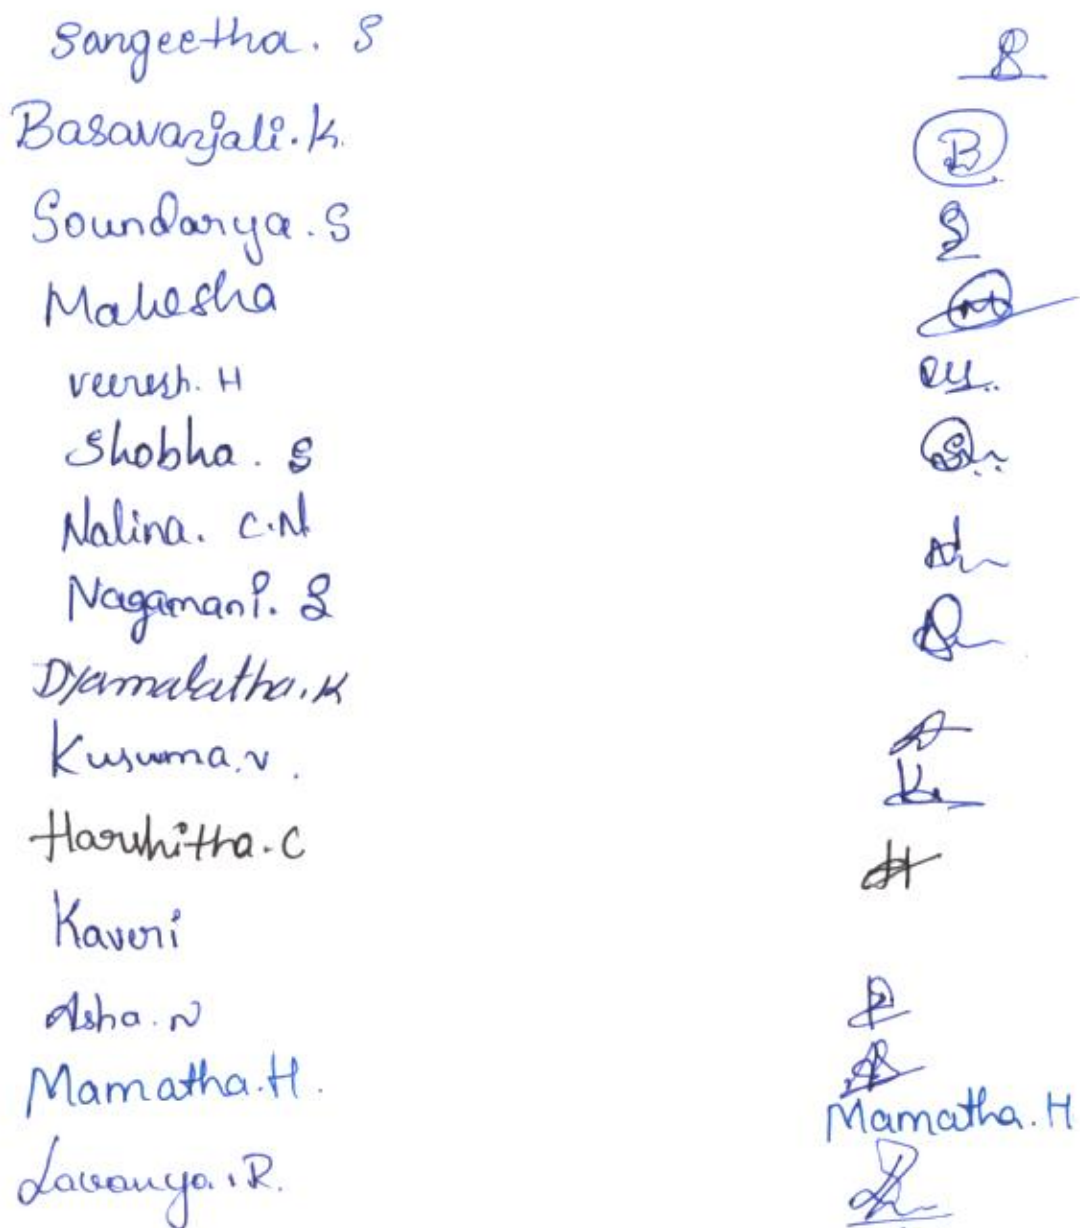 Sangeetha. S
Basavanjali.K.
B
Soundarya.S
S
Mahesha
M
Veeresh. H
Shobha. S
S
Nalina. C.N
N
Nagamani. S
Dyamalatha.K
Kusuma.v.
K
Harshitha.C
H
Kaveri
Asha.N
Mamatha.H.
Mamatha.H
Lavanya.R.